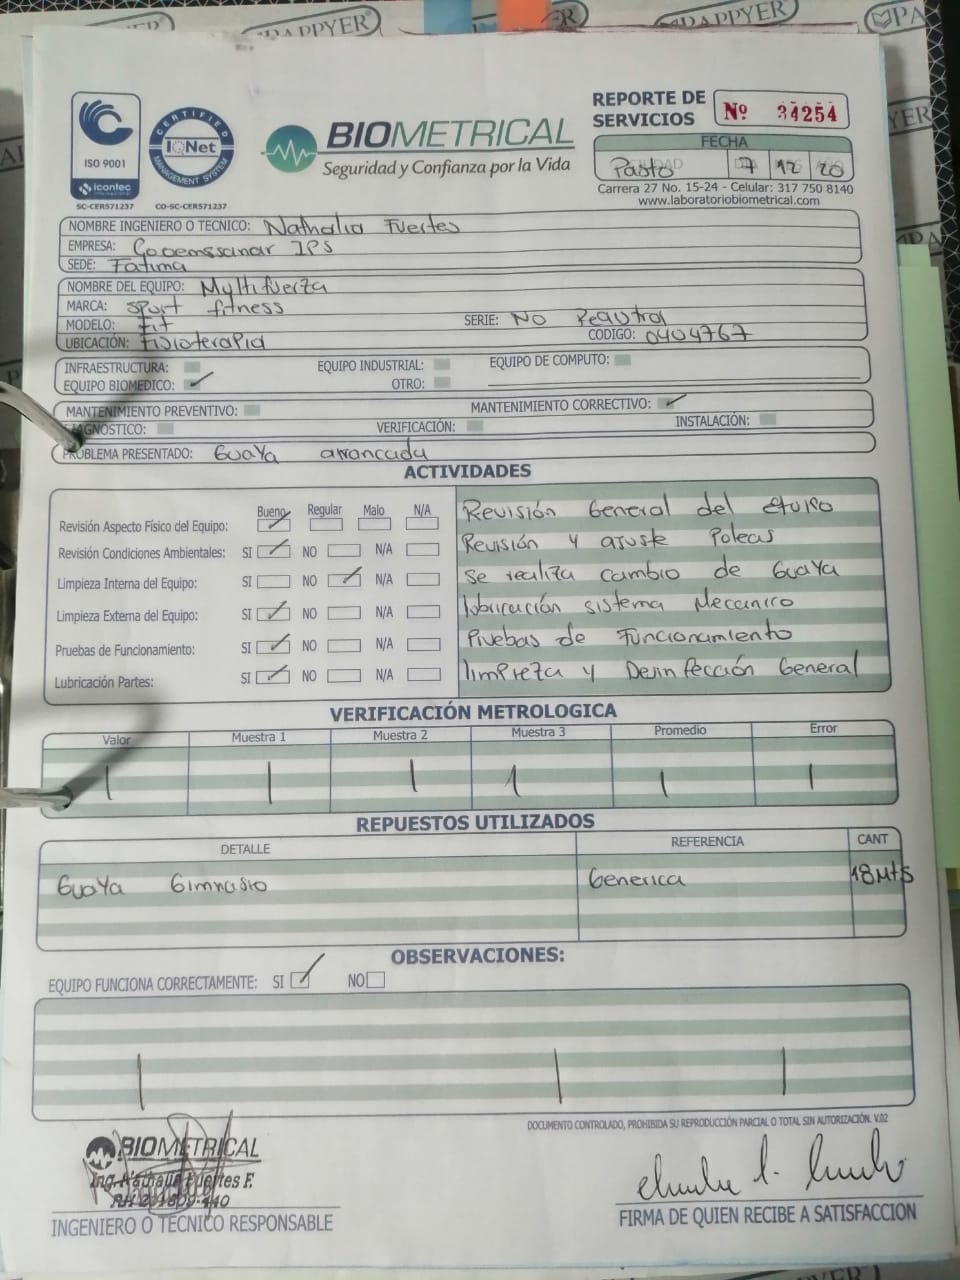 PAPPYER
PAPPYER
PAPPYER
PA
ISO 9001
icontec
SC-CER571237
CERTIFIED
IQNet
MANAGEMENT SYSTEM
CO-SC-CER571237
BIOMETRICAL
Seguridad y Confianza por la Vida
REPORTE DE SERVICIOS Nº 34254
FECHA
Pasto 7 12 20
Carrera 27 No. 15-24 - Celular: 317 750 8140
www.laboratoriobiometrical.com
NOMBRE INGENIERO O TECNICO: Nathalia Fuertes
EMPRESA: Cooemssanar IPS
SEDE: Fatima
NOMBRE DEL EQUIPO: Multifuerza
MARCA: sport fitness
MODELO: Fit SERIE: NO Registra
UBICACIÓN: Fisioterapia CODIGO: 0404767
INFRAESTRUCTURA: EQUIPO INDUSTRIAL: EQUIPO DE COMPUTO:
EQUIPO BIOMEDICO: ✓ OTRO:
MANTENIMIENTO PREVENTIVO: MANTENIMIENTO CORRECTIVO: ✓
DIAGNÓSTICO: VERIFICACIÓN: INSTALACIÓN:
PROBLEMA PRESENTADO: Guaya arrancada
ACTIVIDADES
Bueno Regular Malo N/A
Revisión Aspecto Físico del Equipo:
Revisión Condiciones Ambientales: SI NO N/A
Limpieza Interna del Equipo: SI NO N/A
Limpieza Externa del Equipo: SI NO N/A
Pruebas de Funcionamiento: SI NO N/A
Lubricación Partes: SI NO N/A
Revisión General del equipo
Revisión y ajuste Poleas
se realiza cambio de Guaya
lubricación sistema Mecanico
Pruebas de Funcionamiento
limpieza y Desinfección General
VERIFICACIÓN METROLOGICA
Valor Muestra 1 Muestra 2 Muestra 3 Promedio Error
REPUESTOS UTILIZADOS
DETALLE REFERENCIA CANT
Guaya Gimnasio Generica 18Mts
OBSERVACIONES:
EQUIPO FUNCIONA CORRECTAMENTE: SI NO
DOCUMENTO CONTROLADO, PROHIBIDA SU REPRODUCCIÓN PARCIAL O TOTAL SIN AUTORIZACIÓN. V.02
BIOMETRICAL
Ing. Nathalia Fuertes F.
INGENIERO O TECNICO RESPONSABLE
FIRMA DE QUIEN RECIBE A SATISFACCION